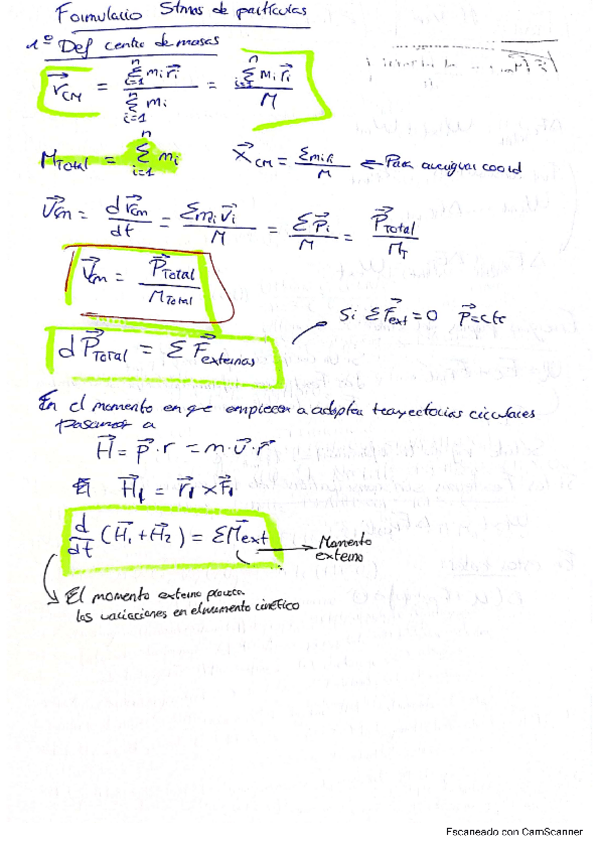 Formulario Stmas de partículas
1º Def centro de masas
r⃗CM = Σⁿᵢ₌₁ mᵢ r⃗ᵢ / Σⁿᵢ₌₁ mᵢ = Σⁿᵢ₌₁ mᵢ r⃗ᵢ / M
MTotal = Σⁿᵢ₌₁ mᵢ    X⃗CM = Σmᵢrᵢ / M ← Para averiguar coord
v⃗cm = d r⃗cm / dt = Σmᵢ v⃗ᵢ / M = Σ p⃗ᵢ / M = P⃗Total / MT
v⃗cm = P⃗Total / MTotal
Si ΣF⃗ext = 0 p⃗=cte
d P⃗Total = Σ F⃗externas
En el momento en que empiecen a adoptar trayectorias circulares
pasamos a
H⃗ = p⃗ · r = m · v⃗ · r⃗
H⃗₁ = r⃗₁ × F⃗₁
d/dt (H⃗₁ + H⃗₂) = ΣM⃗ext → Momento
externo
El momento externo provoca
las variaciones en el momento cinético
Escaneado con CamScanner